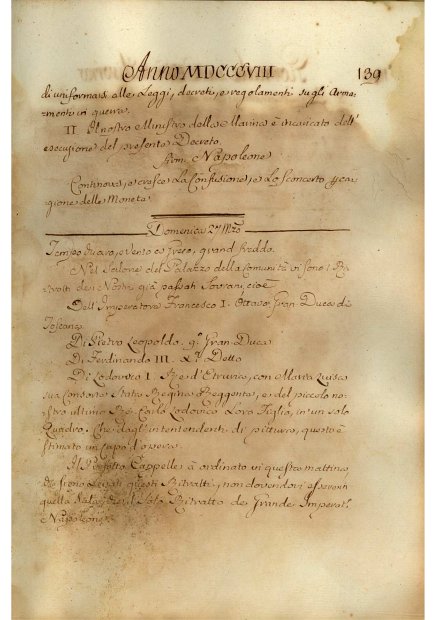 Anno MDCCCVIII 139
di uniformarsi alle Leggi, decreti, e regolamenti sugli Arma-
menti in guerra.
II Il nostro Ministro della Marina è incaricato dell'
esecuzione del presente Decreto.
Napoleone
Continova, e cresce la Confusione, e lo sconcerto per ca-
gione delle Monete.
Domenica
Tempo vario, e vento e Greco, grand freddo.
Nel Salone del Palazzo della Comunità vi sono i Ri-
tratti dei Nostri già passati Sovrani, cioè
Dell'Imperatore Francesco I. Ottavo Gran Duca di
Toscana
Di Pietro Leopoldo Gran Duca
Di Ferdinando III. Detto
Di Lodovico I. Re d'Etruria, con Maria Luisa
sua Consorte Stata Regina Reggente, e del piccolo no-
stro ultimo Re Carlo Lodovico loro Figlio, in un solo
Quadro. Che dagl'intendenti di pittura, questo è
stimato un capo d'opera.
Il Prefetto Cappelle à ordinato in questa mattina
che sieno levati questi Ritratti, non dovendovi essere in
quella Sala che il Solo Ritratto de Grande Imperat.e
Napoleone.